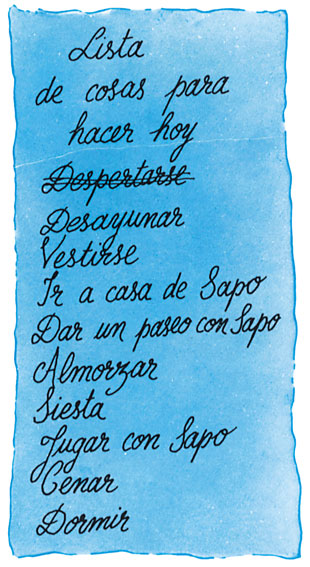 Lista
de cosas para
hacer hoy
Despertarse
Desayunar
Vestirse
Ir a casa de Sapo
Dar un paseo con Sapo
Almorzar
Siesta
Jugar con Sapo
Cenar
Dormir